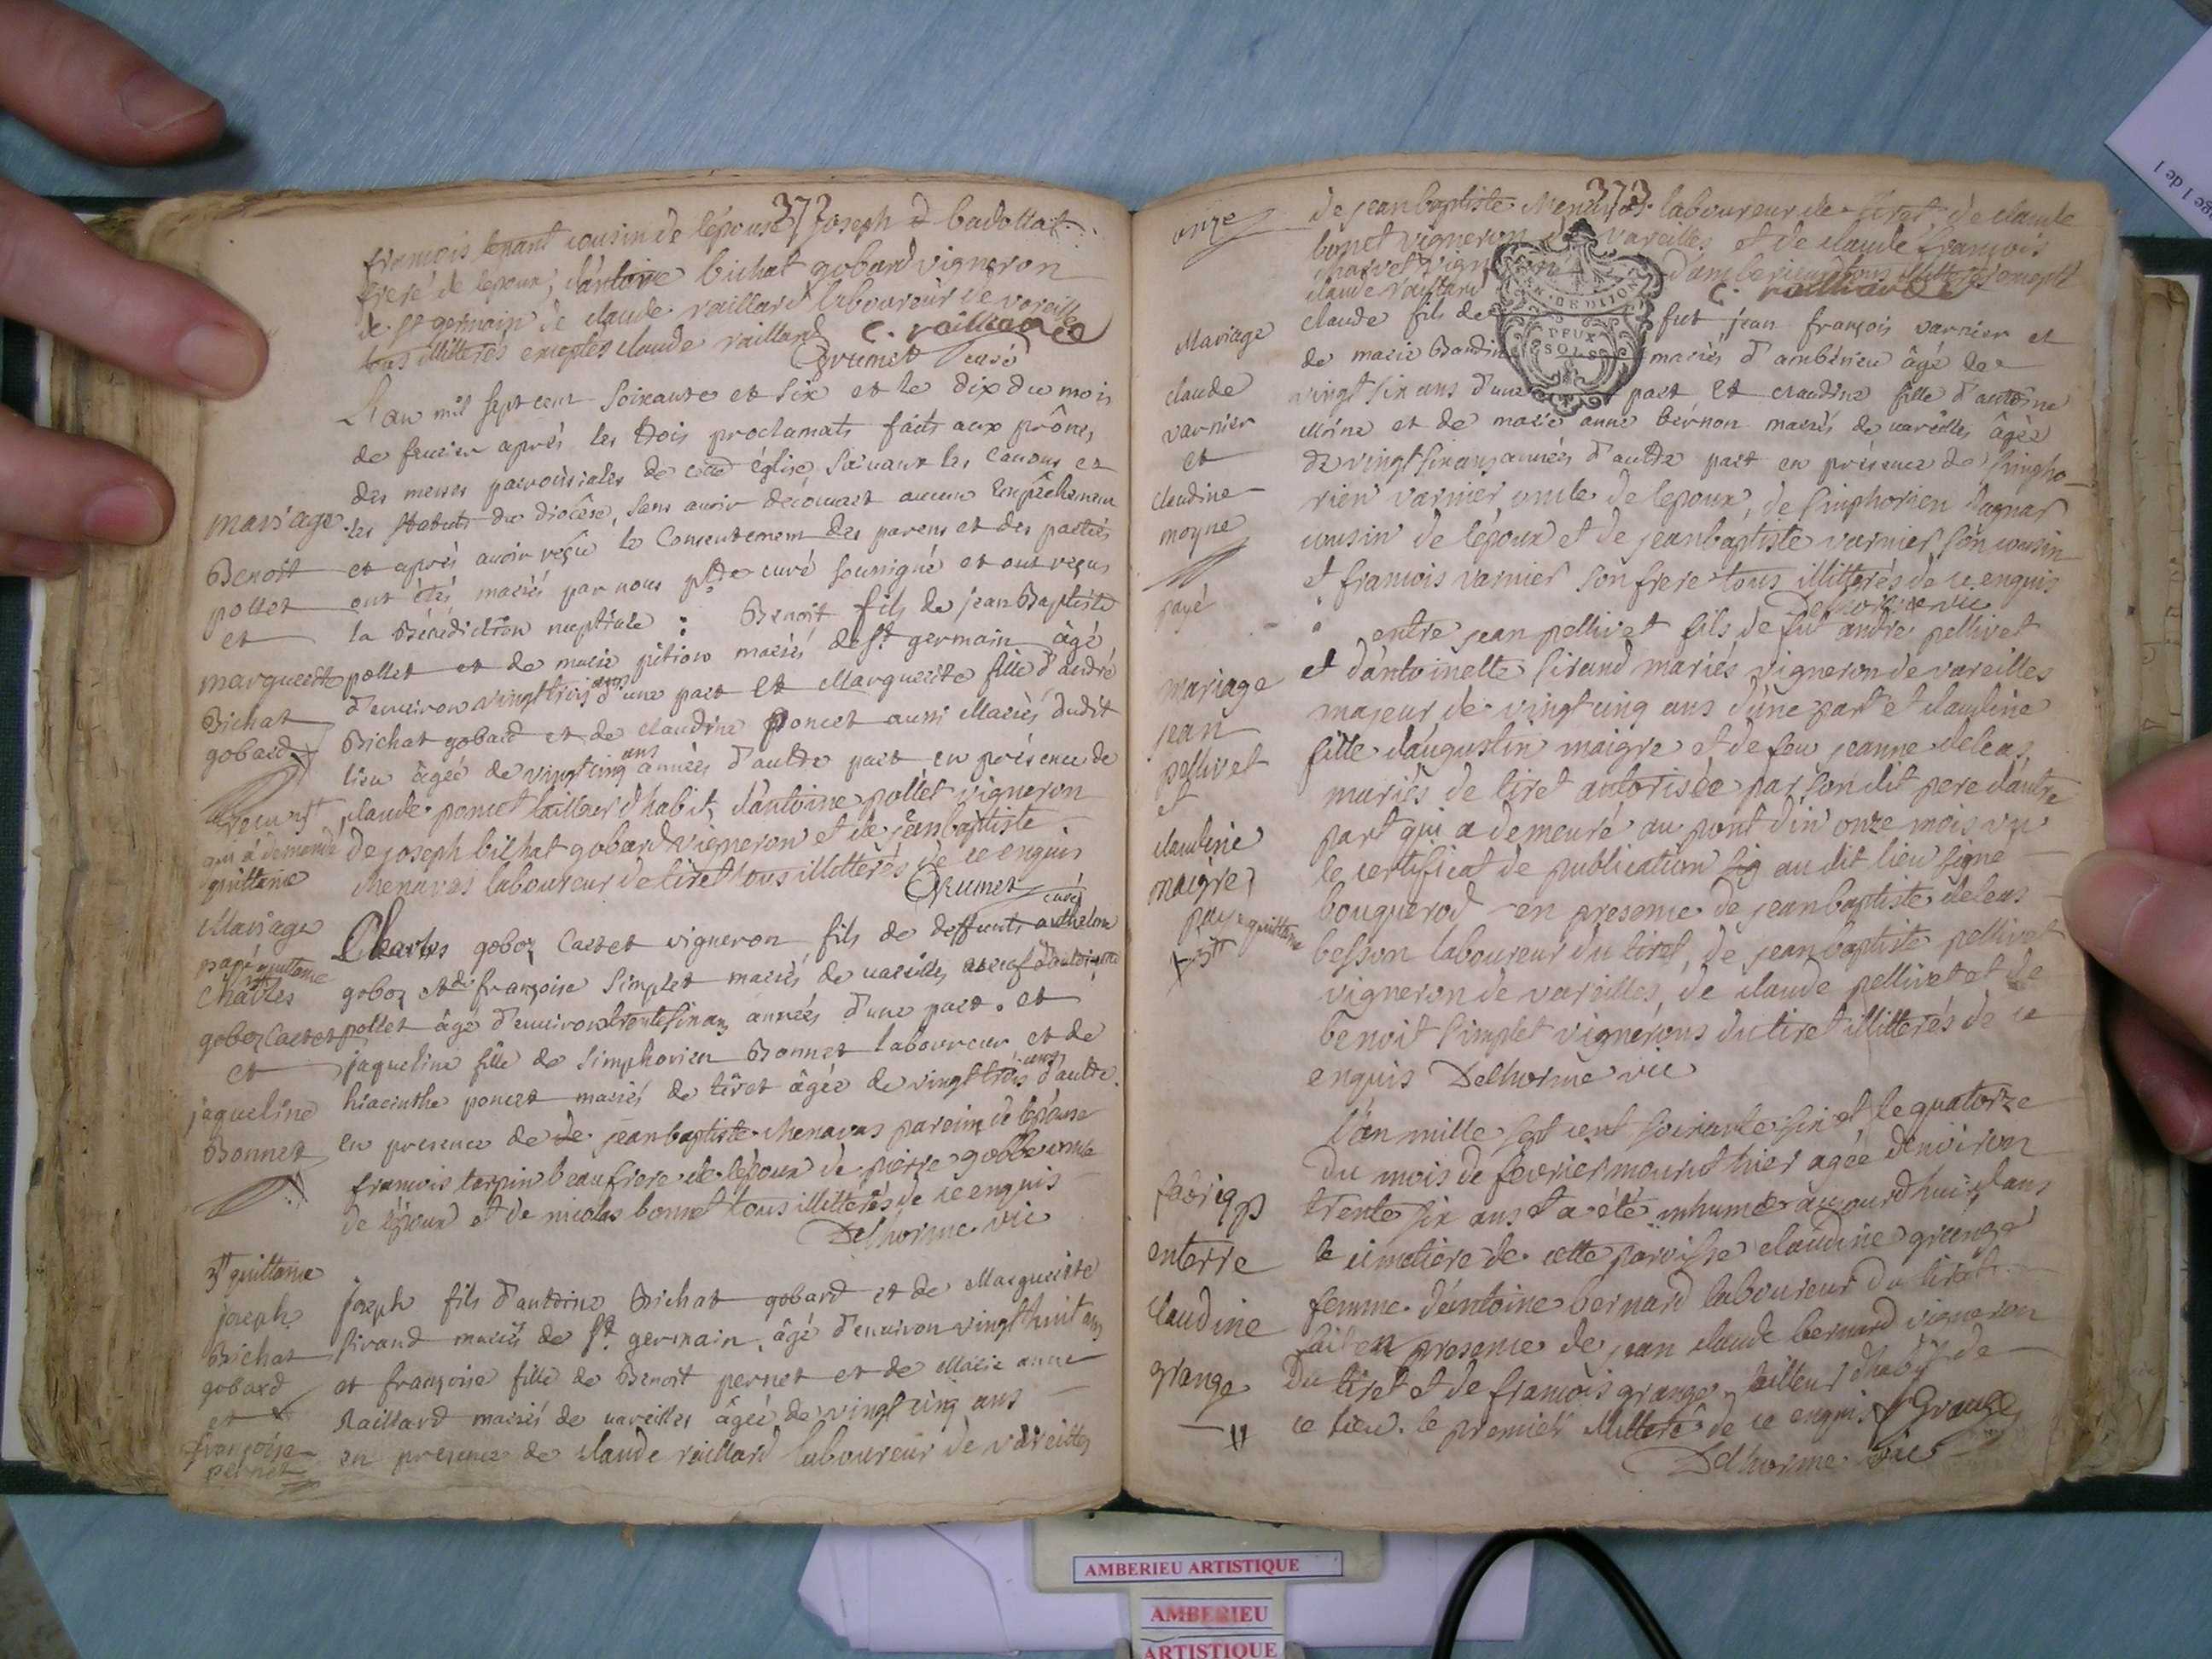 372
françois lepant cousin de l'épouse Joseph badollat
frere de lepoux, d'antoine bichat gobard vigneron
de st germain de claude raillard laboureur de vareille
tous illitteres exceptes claude raillard C. raillard
Grumet curé
L'an mil sept cent soixante et six et le dix du mois
de fevrier aprés les trois proclamats faits aux prônes
des messes paroissiales de cette église suivant les canons et
mariage les statuts du diocêse, sans avoir découvert aucun empêchement
Benoit et aprés avoir reçu le consentement des parens et des parties
pollet ont étés mariés par nous ptre curé soussigné et ont reçus
et la bénédiction nuptiale : Benoit fils de jean Baptiste
marguerite pollet et de marie pition mariés de st germain âgé
Bichat d'environ vingt trois ans d'une part et Marguerite fille d'andré
gobard Bichat gobard et de claudine poncet aussi mariés dudit
lieu âgée de vingt cinq ans années d'autre part en présence de
claude poncet tailleur d'habit, d'antoine pollet vigneron
qui a demandé de joseph bichat gobard vigneron et de jean baptiste
quittance Menavas laboureur de tiret tous illitterés de ce enquis
Grumet curé
Mariage
payé quittance
Charles goboz Castet vigneron fils de deffunts anthelme
Charles goboz et de françoise Simplet mariés de vareilles
goboz Castet pollet âgé d'environ trente six ans années d'une part. et
et jaqueline fille de Simphorien Bonnet laboureur et de
jaqueline hiacinthe poncet mariés de tiret âgée de vingt trois ans d'autre
Bonnet en presence de de jean baptiste Menavas parrin de lepouse
francois terpin beaufrere de lépoux de pierre gobbe oncle
de lépoux et de nicolas bonnet tous illitterés de ce enquis
Delhorme vic
3tt quittance
joseph Joseph fils d'antoine Bichat gobard et de Marguerite
Bichat Sirand mariés de St. germain, âgé d'environ vingt huit ans
gobard et françoise fille de Benoit pernet et de Marie anne
et Raillard mariés de vareilles âgée de vingt cinq ans
françoise pernet en presence de claude raillard laboureur de vareilles
373
onze de jean baptiste Menavas laboureur de tiret de claude
bonnet vigneron de vareilles et de claude françois
charvet vign d'amberieu tous illitterés except
claude raillard C. raillard
Mariage claude fils de fut jean françois varnier et
de marie Bondin mariés d'ambérieu âgé de
claude vingt six ans d'une part et claudine fille d'antoine
varnier Moine et de marie anne bernon mariés de vareilles âgée
et de vingt six ans années d'autre part en présence de Simpho-
claudine rien varnier, oncle de lepoux, de Simphorien
moyne cousin de l'époux et de jean baptiste varnier son cousin
et francois varnier son frere tous illitterés de ce enquis
payé Delhorme vic
entre jean pellivet fils de fut andré pellivet
mariage et d'antoinette Sirand mariés vigneron de vareilles
jean majeur de vingt cinq ans d'une part et claudine
pellivet fille d'augustin maigre et de feu jeanne deleas
et mariés de tiret autorisée par son dit pere d'autre
claudine part qui a demeuré au pont d'in onze mois vu
maigre le certificat de publication au dit lieu signé
payé quittance bouquerod en presence de jean baptiste deleas
3tt besson laboureur du tiret, de jean baptiste pellivet
vigneron de vareilles, de claude pellivet et de
benoit Simplet vignerons du tiret illitterés de ce
enquis Delhorme vic
L'an mille sept cent soixante six et le quatorze
du mois de fevrier mourut hier agée denviron
trente six ans et a été inhumée aujourdhui dans
enterre le cimetière de cette paroisse claudine grange
claudine femme d'antoine bernard laboureur du tiret
fait en presence de jean claude bernard vigneron
grange du tiret et de francois grange tailleur d'habit de
ce lieu. le premier illitteré de ce enquis f Grange
Delhorme vic
DEUX
SOLS
AMBERIEU ARTISTIQUE
AMBERIEU
ARTISTIQUE